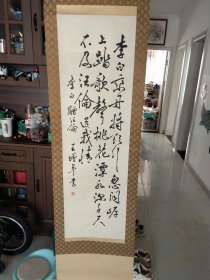 李白乘舟将欲行忽闻岸
上踏歌声桃花潭水深千尺
不及汪伦送我情
李白 赠汪伦